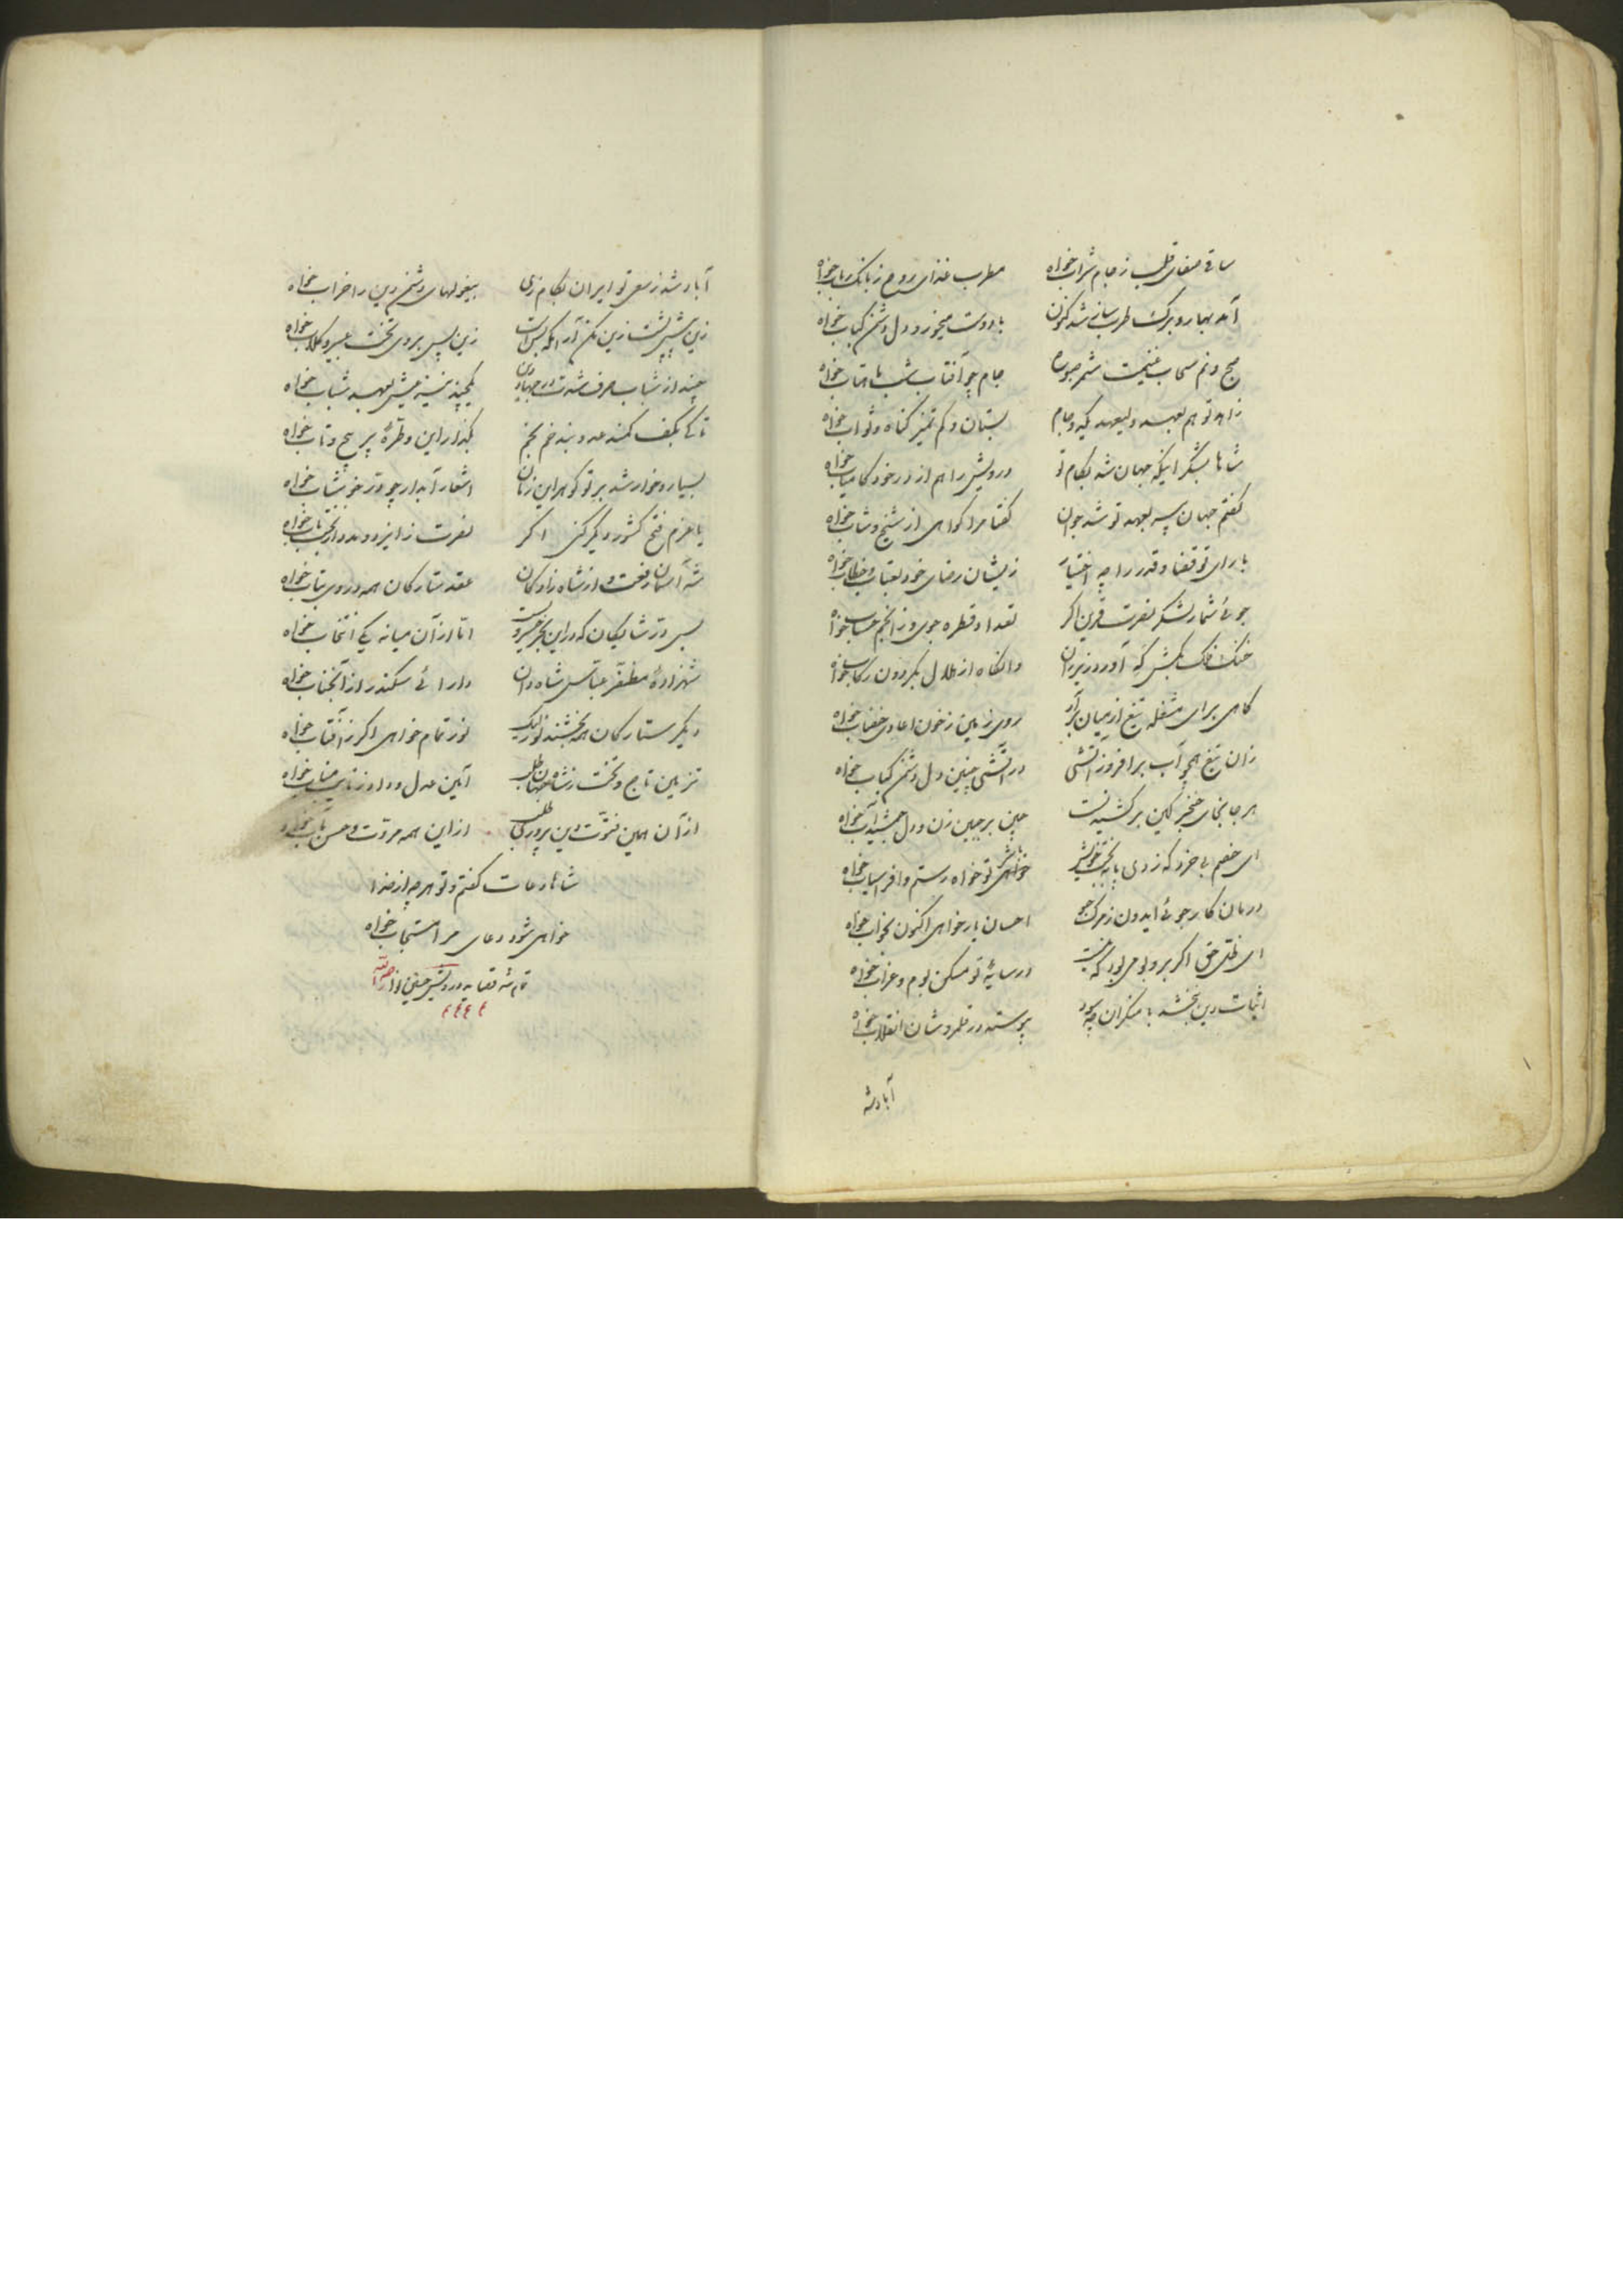 ساقی صفای قلب ز جام شراب خواه مطرب غذای روح ز بانک رباب خواه
آمد بهار و برک طرب ساز شد کنون با دوست می خور و دل دشمن کباب خواه
صبح و نم سحاب غنیمت شمر صبوح جام چو آفتاب شب ماهتاب خواه
زاهد تو هم بعهد ولیعهد کیر جام بستان و کم تمیز کناه و ثواب خواه
شاها بشکر اینکه جهان شد بکام تو درویش را هم از در خود کامیاب خواه
کفتم جهان پیر بعهد تو شد جوان کفتا مرا کواهی از شیخ و شاب خواه
با رای تو قضا و قدر را چه اختیار زیشان رضای خود بعتاب و خطاب خواه
جوئی شمار لشکر نصرت قرین اکر تعداد قطره جوی و ز انجم حساب خواه
خنک فلک بکش که آورد زیر ران وانکاه از هلال بکردون رکاب خواه
کاهی برای مشغله تیغ از میان برآر روی زمین ز خون اعادی خضاب خواه
زان تیغ همچو آب برافروز آتشی در آتشی چنین دل دشمن کباب خواه
هر جا بجای خنجر کین برکشید چین بر جبین زن و دل جمشید آب خواه
ای خصم بی خرد که زدی پا ببخت خویش خواه رستم و افراسیاب خواه
درمان کار جوئی ایدون ز مرک جو احسان یار خواهی اکنون بخواب خواه
ای ظل حق اکر بر و بومی بود که نیست در سایهٔ تو مسکن بوم و غراب خواه
اثبات دین نبخشد با منکران چه سود پیوسته در قلمروشان انقلاب خواه
آباد شد
آباد شد ز سعی تو ایران بکام زی بیغولهای دشمن دین را خراب خواه
زین پیش پشت زین مکن آرامکه بس است زین پس بروی تخت عبیر و کلاب خواه
چند از شباب صرف شدت در جهاد دین یکچند نیز عیش بعهد شباب خواه
تا کی بکف کمند عدو بند خم بخم بکذار این و طرهٔ پر پیچ و تاب خواه
بسیار و خوار شد بر تو کوهر این زمان اشعار آبدار چو در خوشاب خواه
با عزم فتح کشور دیکر کنی اکر نصرت ز ایزد و مدد از بخت یاب خواه
شه آسمان رفعت و از شاه زادکان عقد ستارکان همه در وی بتاب خواه
بس در شایکان که در این بحر خسرویست اما از آن میانه یکی انتخاب خواه
شهزادهٔ مظفر عباس شاه دان دارائی سکندر از آنجناب خواه
دیکر ستارکان همه بخشند نور لیک نور تمام خواهی اکر ز آفتاب خواه
تزیین تاج و تخت ز شاه جهان طلب آیین عدل و داد ز نایب مناب خواه
از آن همین فتوت و دین پروری طلب از این همه مروت و حسن مآب خواه
شاها دعات کفتم و تو هر چه از خدا
خواهی شود دعای مرا مستجاب خواه
تمام شد قصاید درویش حسین نوا رحمه الله